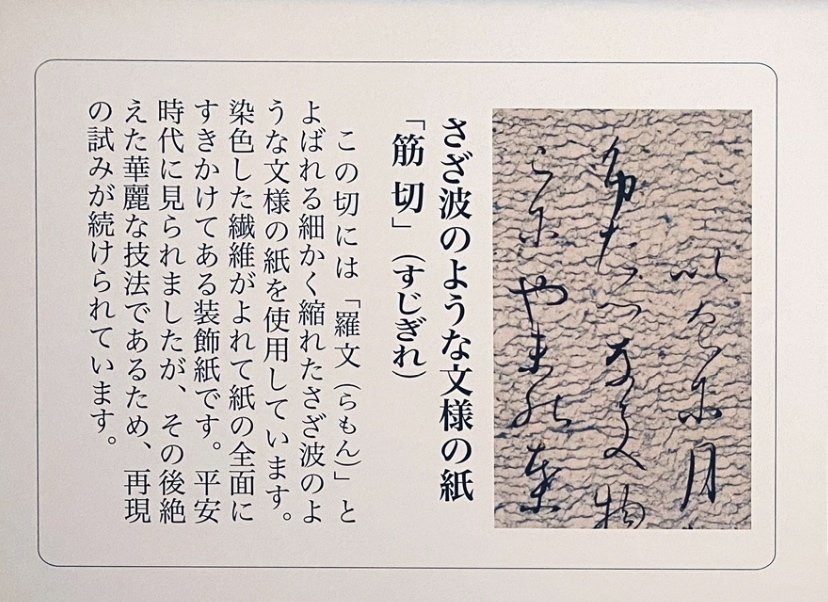 さざ波のような文様の紙
「筋切」（すじぎれ）
この切には「羅文（らもん）」と
よばれる細かく縮れたさざ波のよ
うな文様の紙を使用しています。
染色した繊維がよれて紙の全面に
すきかけてある装飾紙です。平安
時代に見られましたが、その後絶
えた華麗な技法であるため、再現
の試みが続けられています。